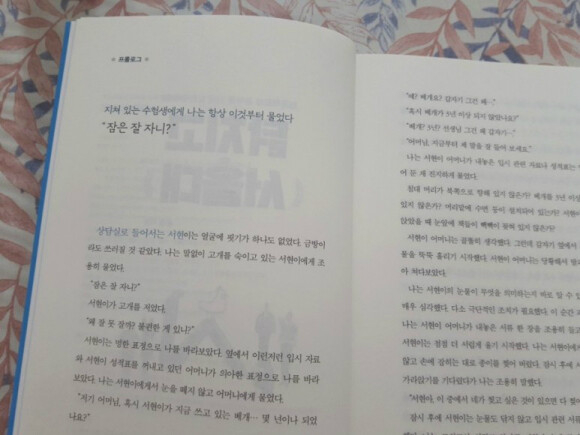 * 프롤로그 *
지쳐 있는 수험생에게 나는 항상 이것부터 물었다
"잠은 잘 자니?"
상담실로 들어서는 서현이는 얼굴에 핏기가 하나도 없었다. 금방이
라도 쓰러질 것 같았다. 나는 말없이 고개를 숙이고 있는 서현이에게 조
용히 물었다.
"잠은 잘 자니?"
서현이가 고개를 저었다.
"왜 잘 못 잘까? 불편한 게 있니?"
서현이는 멍한 표정으로 나를 바라보았다. 옆에서 이런저런 입시 자료
와 서현이 성적표를 꺼내고 있던 어머니가 의아한 표정으로 나를 바라
보았다. 나는 서현이에게서 눈을 떼지 않고 어머니에게 물었다.
"저기 어머님, 혹시 서현이가 지금 쓰고 있는 베개… 몇 년이나 되었
나요?"
"네? 베개요? 갑자기 그건 왜…"
"혹시 베개가 5년 이상 되지 않았나요?"
"베개? 5년? 선생님 그건 왜 갑자기…"
"어머님, 지금부터 제 말을 잘 들어 보세요."
나는 서현이 어머니가 내놓은 입시 관련 자료나 성적표는
어 둔 채 진지하게 물었다.
침대 머리가 북쪽으로 향해 있지 않은가? 베개를 5년 이상
있지 않은가? 머리맡에 수면 등이 설치되어 있는가? 서현이
앉았을 때 눈앞에 책들이 빽빽이 꽂혀 있지 않은가?
서현이 어머니는 골똘히 생각했다. 그런데 갑자기 옆에서
물을 뚝뚝 흘리기 시작했다. 서현이 어머니는 당황해서 딸
아 쳐다보았다.
나는 서현이의 눈물이 무엇을 의미하는지 바로 알 수
매우 심각했다. 다소 극단적인 조치가 필요했다. 이 순간
나는 서현이 어머니가 내놓은 서류 한 장을 조용히 들고
서현이는 점점 더 서럽게 울기 시작했다. 나는 서현이
않고 손에 잡히는 대로 종이를 찢어 버렸다. 잠시 후에 서
가라앉기를 기다렸다가 나는 조용히 말했다.
"서현아, 이 중에서 네가 찢고 싶은 것이 있으면 다
잠시 후에 서현이는 눈물도 닦지 않고 입시 관련 서류